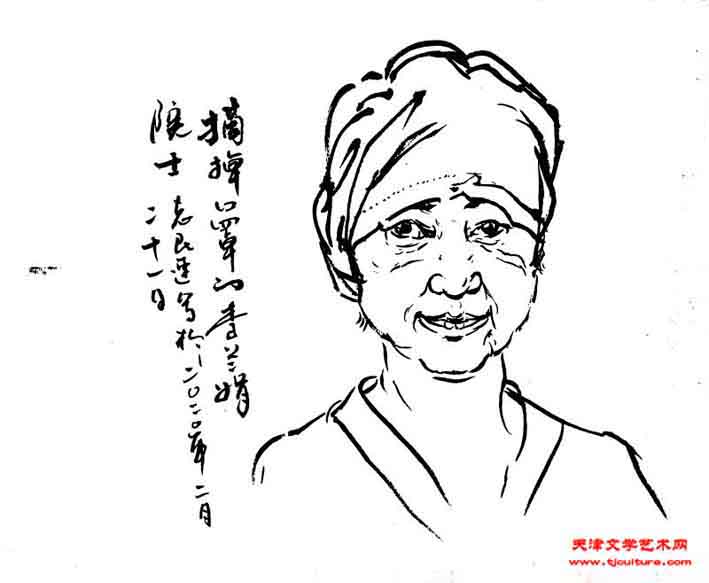 摘掉口罩的李兰娟
院士 志民速写於二〇二〇年二月
二十一日
天津文学艺术网
www.tjculture.com